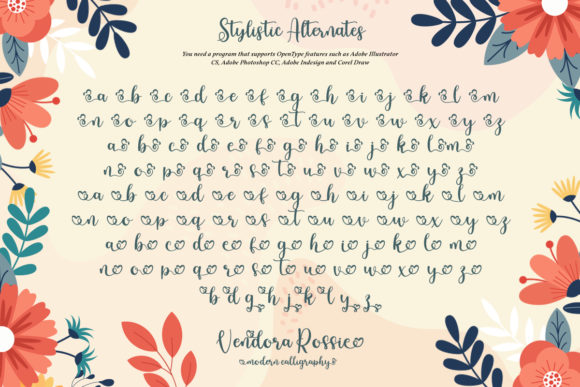 Stylistic Alternates
You need a program that supports OpenType features such as Adobe Illustrator
CS, Adobe Photoshop CC, Adobe Indesign and Corel Draw
a b c d e f g h i j k l m
n o p q r s t u v w x y z
a b c d e f g h i j k l m
n o p q r s t u v w x y z
a b c d e f g h i j k l m
n o p q r s t u v w x y z
a b c d e f g h i j k l m
n o p q r s t u v w x y z
b d g h j k l y z
Vendora Rossie
modern calligraphy